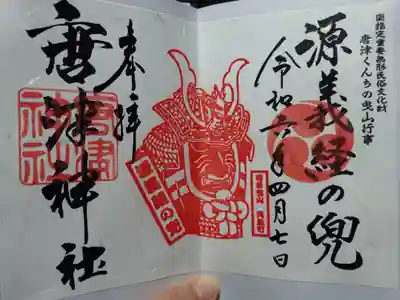 国指定重要無形民俗文化財
唐津くんちの曳山行事
源義経の兜
令和六年四月七日
奉拝
唐津神社
唐津神社